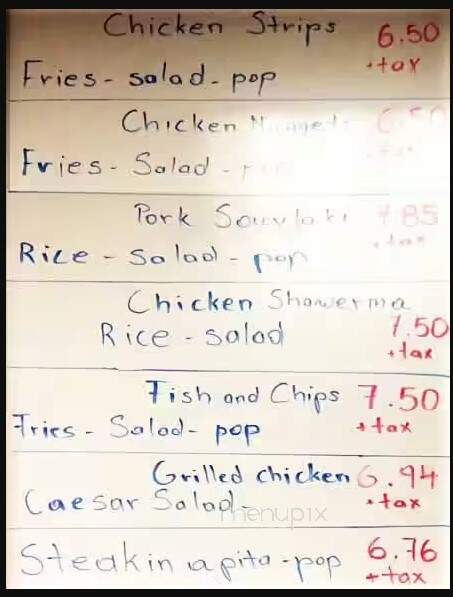 Chicken Strips 6.50
Fries - salad - pop +tax
Chicken Nugget 6.50
Fries - Salad -
Pork Souvlaki 7.85
+tax
Rice - Salad - pop
Chicken Shawerma
Rice - salad 7.50
+tax
Fish and Chips 7.50
Fries - Salad - pop +tax
Grilled chicken 6.94
Caesar Salad - +tax
menupix
Steak in a pita - pop 6.76
+tax